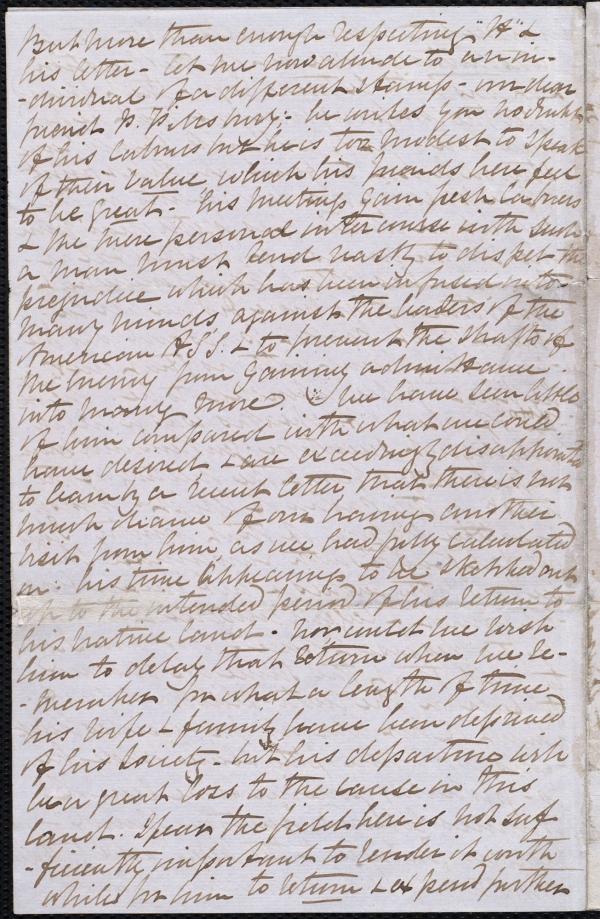 But more than enough respecting "H" &
his letter - let me now alude to an in-
-dividual of a different stamp - our dear
friend P. Pillsbury - he writes you no doubt
of his labours but he is too modest to speak
of their value which his friends here feel
to be great - his meetings gain fresh labourers
& the mere personal intercourse with such
a man must tend vastly to dispel the
prejudice which has been infused into
many minds against the leaders of the
American A.S.S. & to prevent the shafts of
the enemy from gaining admittance
into many more. We have seen little
of him compared with what we could
have desired & are exceedingly disappointed
to learn by a recent letter that there is not
much chance of our having another
visit from him as we had fully calculated
on. his time appearing to be sketched out
up to the intended period of his return to
his native land - nor could we wish
him to delay that return when we re-
-member for what a length of time
his wife & family have been deprived
of his society - but his departure will
be a great loss to the cause in this
land. I fear the field here is not suf
-ficiently important to render it worth
while for him to return & expend further